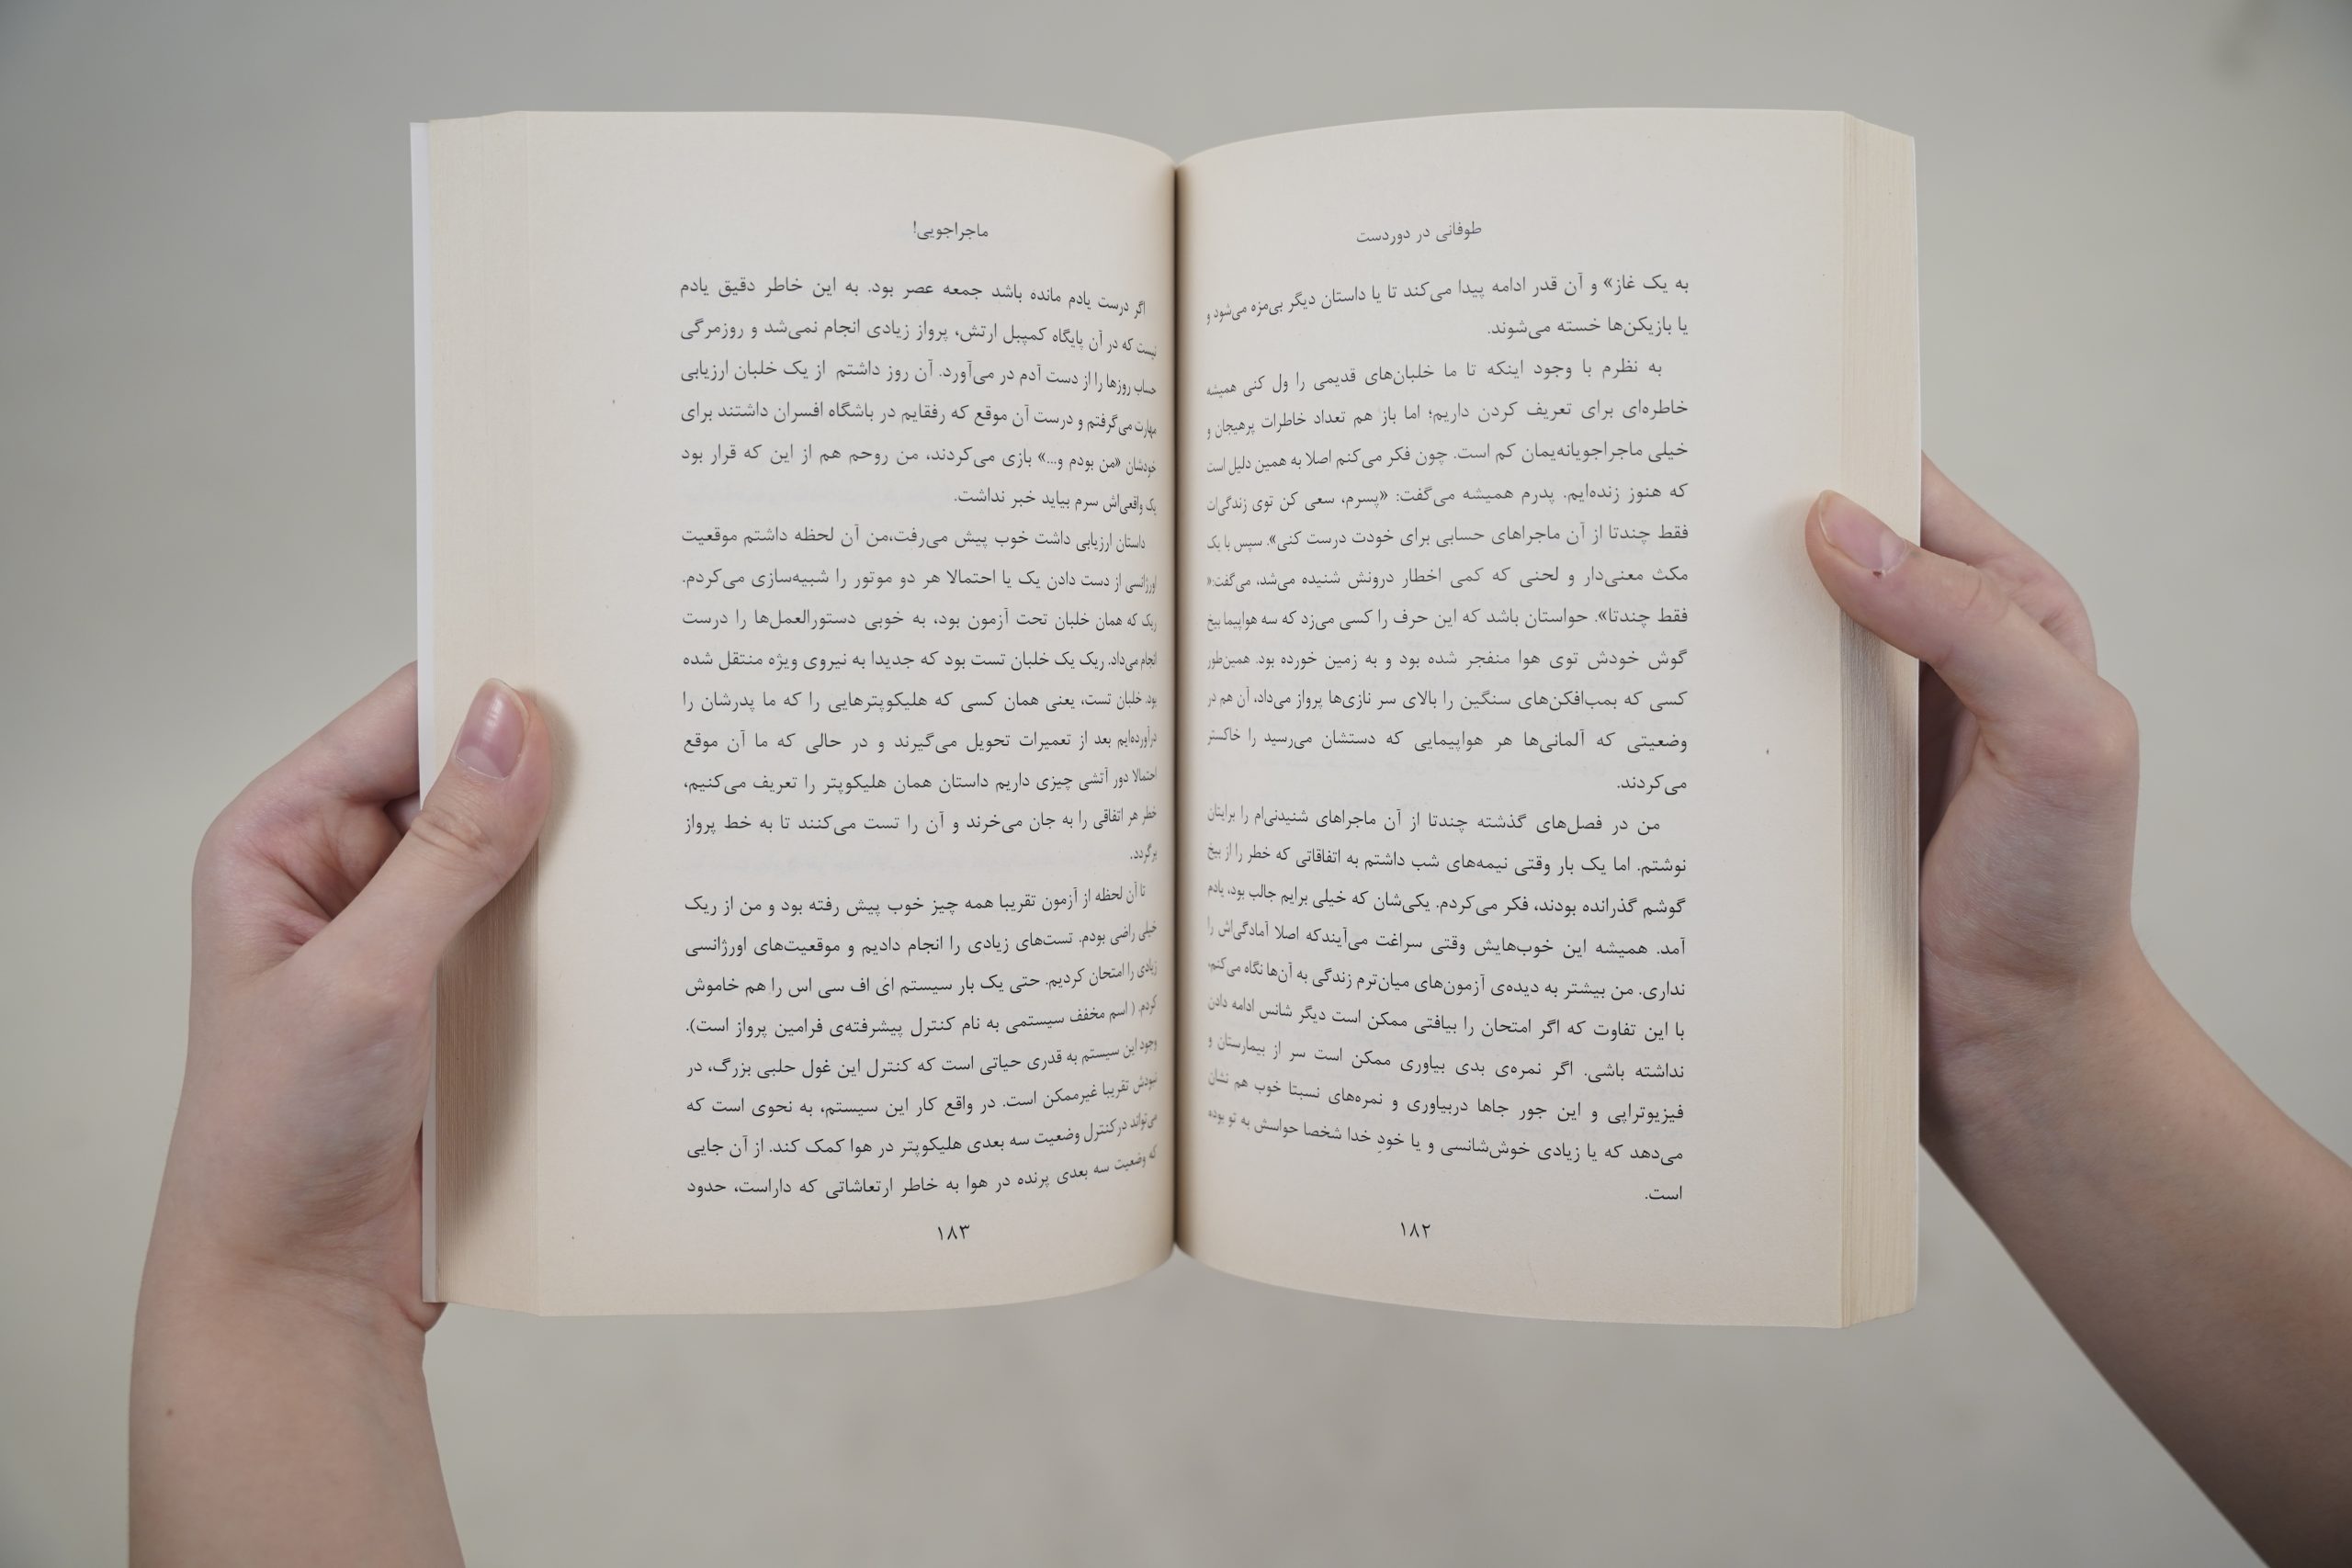 طوفانی در دوردست
به یک غاز» و آن قدر ادامه پیدا می‌کند تا یا داستان دیگر بی‌مزه می‌شود و
یا بازیکن‌ها خسته می‌شوند.
به نظرم با وجود اینکه تا ما خلبان‌های قدیمی را ول کنی همیشه
خاطره‌ای برای تعریف کردن داریم؛ اما باز هم تعداد خاطرات پرهیجان و
خیلی ماجراجویانه‌یمان کم است. چون فکر می‌کنم اصلا به همین دلیل است
که هنوز زنده‌ایم. پدرم همیشه می‌گفت: «پسرم، سعی کن توی زندگی‌ات
فقط چندتا از آن ماجراهای حسابی برای خودت درست کنی». سپس با یک
مکث معنی‌دار و لحنی که کمی اخطار درونش شنیده می‌شد، می‌گفت:«
فقط چندتا». حواستان باشد که این حرف را کسی می‌زد که سه هواپیما بیخ
گوش خودش توی هوا منفجر شده بود و به زمین خورده بود. همین‌طور
کسی که بمب‌افکن‌های سنگین را بالای سر نازی‌ها پرواز می‌داد، آن هم در
وضعیتی که آلمانی‌ها هر هواپیمایی که دستشان می‌رسید را خاکستر
می‌کردند.
من در فصل‌های گذشته چندتا از آن ماجراهای شنیدنی‌ام را برایتان
نوشتم. اما یک بار وقتی نیمه‌های شب داشتم به اتفاقاتی که خطر را از بیخ
گوشم گذرانده بودند، فکر می‌کردم. یکی‌شان که خیلی برایم جالب بود، یادم
آمد. همیشه این خوب‌هایش وقتی سراغت می‌آیندکه اصلا آمادگی‌اش را
نداری. من بیشتر به دیده‌ی آزمون‌های میان‌ترم زندگی به آن‌ها نگاه می‌کنم،
با این تفاوت که اگر امتحان را بیافتی ممکن است دیگر شانس ادامه دادن
نداشته باشی. اگر نمره‌ی بدی بیاوری ممکن است سر از بیمارستان و
فیزیوتراپی و این جور جاها دربیاوری و نمره‌های نسبتا خوب هم نشان
می‌دهد که یا زیادی خوش‌شانسی و یا خودِ خدا شخصا حواسش به تو بوده
است.
۱۸۲
ماجراجویی!
اگر درست یادم مانده باشد جمعه عصر بود. به این خاطر دقیق یادم
نیست که در آن پایگاه کمپبل ارتش، پرواز زیادی انجام نمی‌شد و روزمرگی
حساب روزها را از دست آدم در می‌آورد. آن روز داشتم از یک خلبان ارزیابی
مهارت می‌گرفتم و درست آن موقع که رفقایم در باشگاه افسران داشتند برای
خودشان «من بودم و...» بازی می‌کردند، من روحم هم از این که قرار بود
یک واقعی‌اش سرم بیاید خبر نداشت.
داستان ارزیابی داشت خوب پیش می‌رفت،من آن لحظه داشتم موقعیت
اورژانسی از دست دادن یک یا احتمالا هر دو موتور را شبیه‌سازی می‌کردم.
ریک که همان خلبان تحت آزمون بود، به خوبی دستورالعمل‌ها را درست
انجام می‌داد. ریک یک خلبان تست بود که جدیدا به نیروی ویژه منتقل شده
بود. خلبان تست، یعنی همان کسی که هلیکوپترهایی را که ما پدرشان را
درآورده‌ایم بعد از تعمیرات تحویل می‌گیرند و در حالی که ما آن موقع
احتمالا دور آتشی چیزی داریم داستان همان هلیکوپتر را تعریف می‌کنیم،
خطر هر اتفاقی را به جان می‌خرند و آن را تست می‌کنند تا به خط پرواز
برگردد.
تا آن لحظه از آزمون تقریبا همه چیز خوب پیش رفته بود و من از ریک
خیلی راضی بودم. تست‌های زیادی را انجام دادیم و موقعیت‌های اورژانسی
زیادی را امتحان کردیم. حتی یک بار سیستم ای اف سی اس را هم خاموش
کردم. ( اسم مخفف سیستمی به نام کنترل پیشرفته‌ی فرامین پرواز است).
وجود این سیستم به قدری حیاتی است که کنترل این غول حلبی بزرگ، در
نبودش تقریبا غیرممکن است. در واقع کار این سیستم، به نحوی است که
می‌تواند درکنترل وضعیت سه بعدی هلیکوپتر در هوا کمک کند. از آن جایی
که وضعیت سه بعدی پرنده در هوا به خاطر ارتعاشاتی که داراست، حدود
۱۸۳